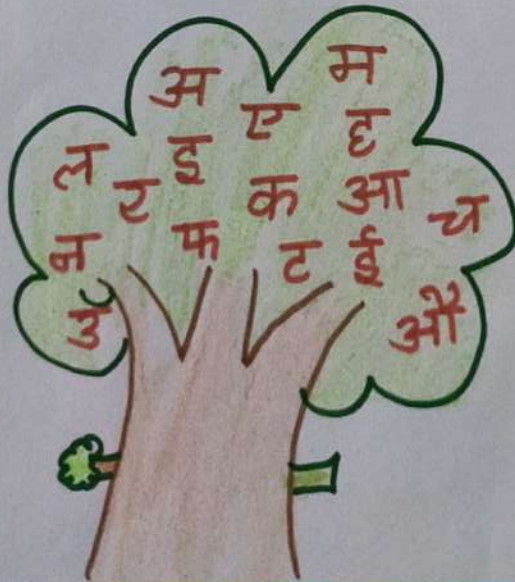 अ म
ए ह
ल इ
र क आ च
न फ ट ई
उ औ